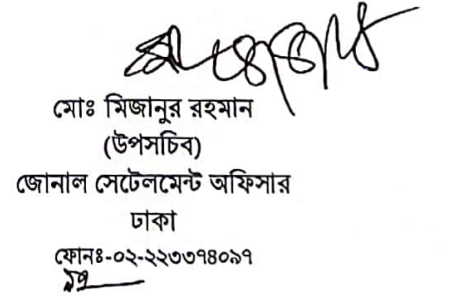 মোঃ মিজানুর রহমান
(উপসচিব)
জোনাল সেটেলমেন্ট অফিসার
ঢাকা
ফোনঃ-০২-২২৩৩৭৪০৯৭